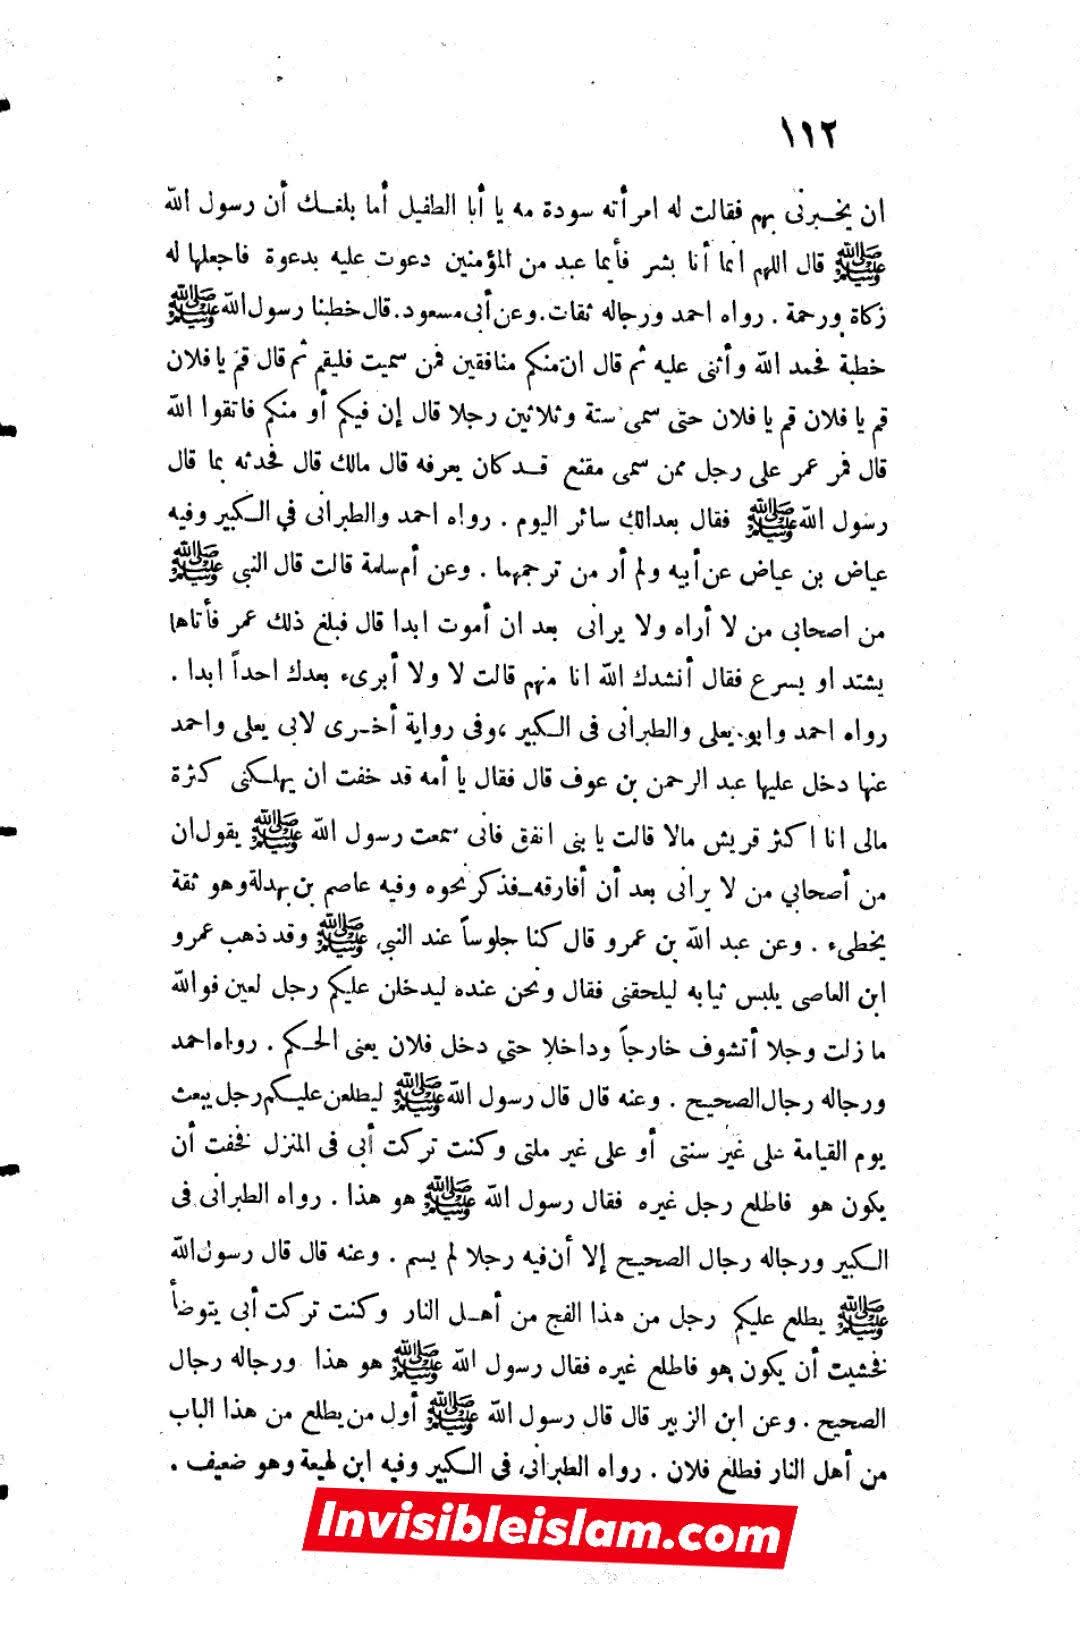 ١١٢
ان يخبرنى بهم فقالت له امرأته سودة مه يا أبا الطفيل أما بلغك أن رسول الله
ﷺ قال اللهم انما أنا بشر فأيما عبد من المؤمنين دعوت عليه بدعوة فاجعلها له
زكاة ورحمة . رواه احمد ورجاله ثقات . وعن أبى مسعود . قال خطبنا رسول الله ﷺ
خطبة فحمد الله وأثنى عليه ثم قال ان منكم منافقين فمن سميت فليقم ثم قال قم يا فلان
قم يا فلان قم يا فلان حتى سمى ستة وثلاثين رجلا قال إن فيكم أو منكم فاتقوا الله
قال فمر عمر على رجل ممن سمى مقنع قد كان يعرفه قال مالك قال فحدثه بما قال
رسول الله ﷺ فقال بعدالك سائر اليوم . رواه احمد والطبرانى في الكبير وفيه
عياض بن عياض عن أبيه ولم أر من ترجمهما . وعن أم سلمة قالت قال النبى ﷺ
من اصحابي من لا أراه ولا يرانى بعد ان أموت ابدا قال فبلغ ذلك عمر فأتاها
يشتد او يسرع فقال أنشدك الله انا منهم قالت لا ولا أبرىء بعدك احداً ابدا .
رواه احمد وابو يعلى والطبرانى فى الكبير ، وفى رواية أخرى لابى يعلى واحمد
عنها دخل عليها عبد الرحمن بن عوف قال فقال يا أمه قد خفت ان يهلكنى كثرة
مالى انا اكثر قريش مالا قالت يا بنى انفق فانى سمعت رسول الله ﷺ يقول ان
من أصحابي من لا يرانى بعد أن أفارقه ـ فذكر نحوه وفيه عاصم بن بهدلة وهو ثقة
يخطىء . وعن عبد الله بن عمرو قال كنا جلوساً عند النبي ﷺ وقد ذهب عمرو
ابن العاصى يلبس ثيابه ليلحقنى فقال ونحن عنده ليدخلن عليكم رجل لعين فوالله
ما زلت وجلا أتشوف خارجاً وداخلا حتي دخل فلان يعنى الحكم . رواه احمد
ورجاله رجال الصحيح . وعنه قال قال رسول الله ﷺ ليطلعن عليكم رجل يبعث
يوم القيامة على غير سنتى أو على غير ملتى وكنت تركت أبى فى المنزل فخفت أن
يكون هو فاطلع رجل غيره فقال رسول الله ﷺ هو هذا . رواه الطبرانى فى
الكبير ورجاله رجال الصحيح إلا أن فيه رجلا لم يسم . وعنه قال قال رسول الله
ﷺ يطلع عليكم رجل من هذا الفج من أهل النار وكنت تركت أبى يتوضأ
فخشيت أن يكون هو فاطلع غيره فقال رسول الله ﷺ هو هذا ورجاله رجال
الصحيح . وعن ابن الزبير قال قال رسول الله ﷺ أول من يطلع من هذا الباب
من أهل النار فطلع فلان . رواه الطبرانى فى الكبير وفيه ابن لهيعة وهو ضعيف .
Invisibleislam.com